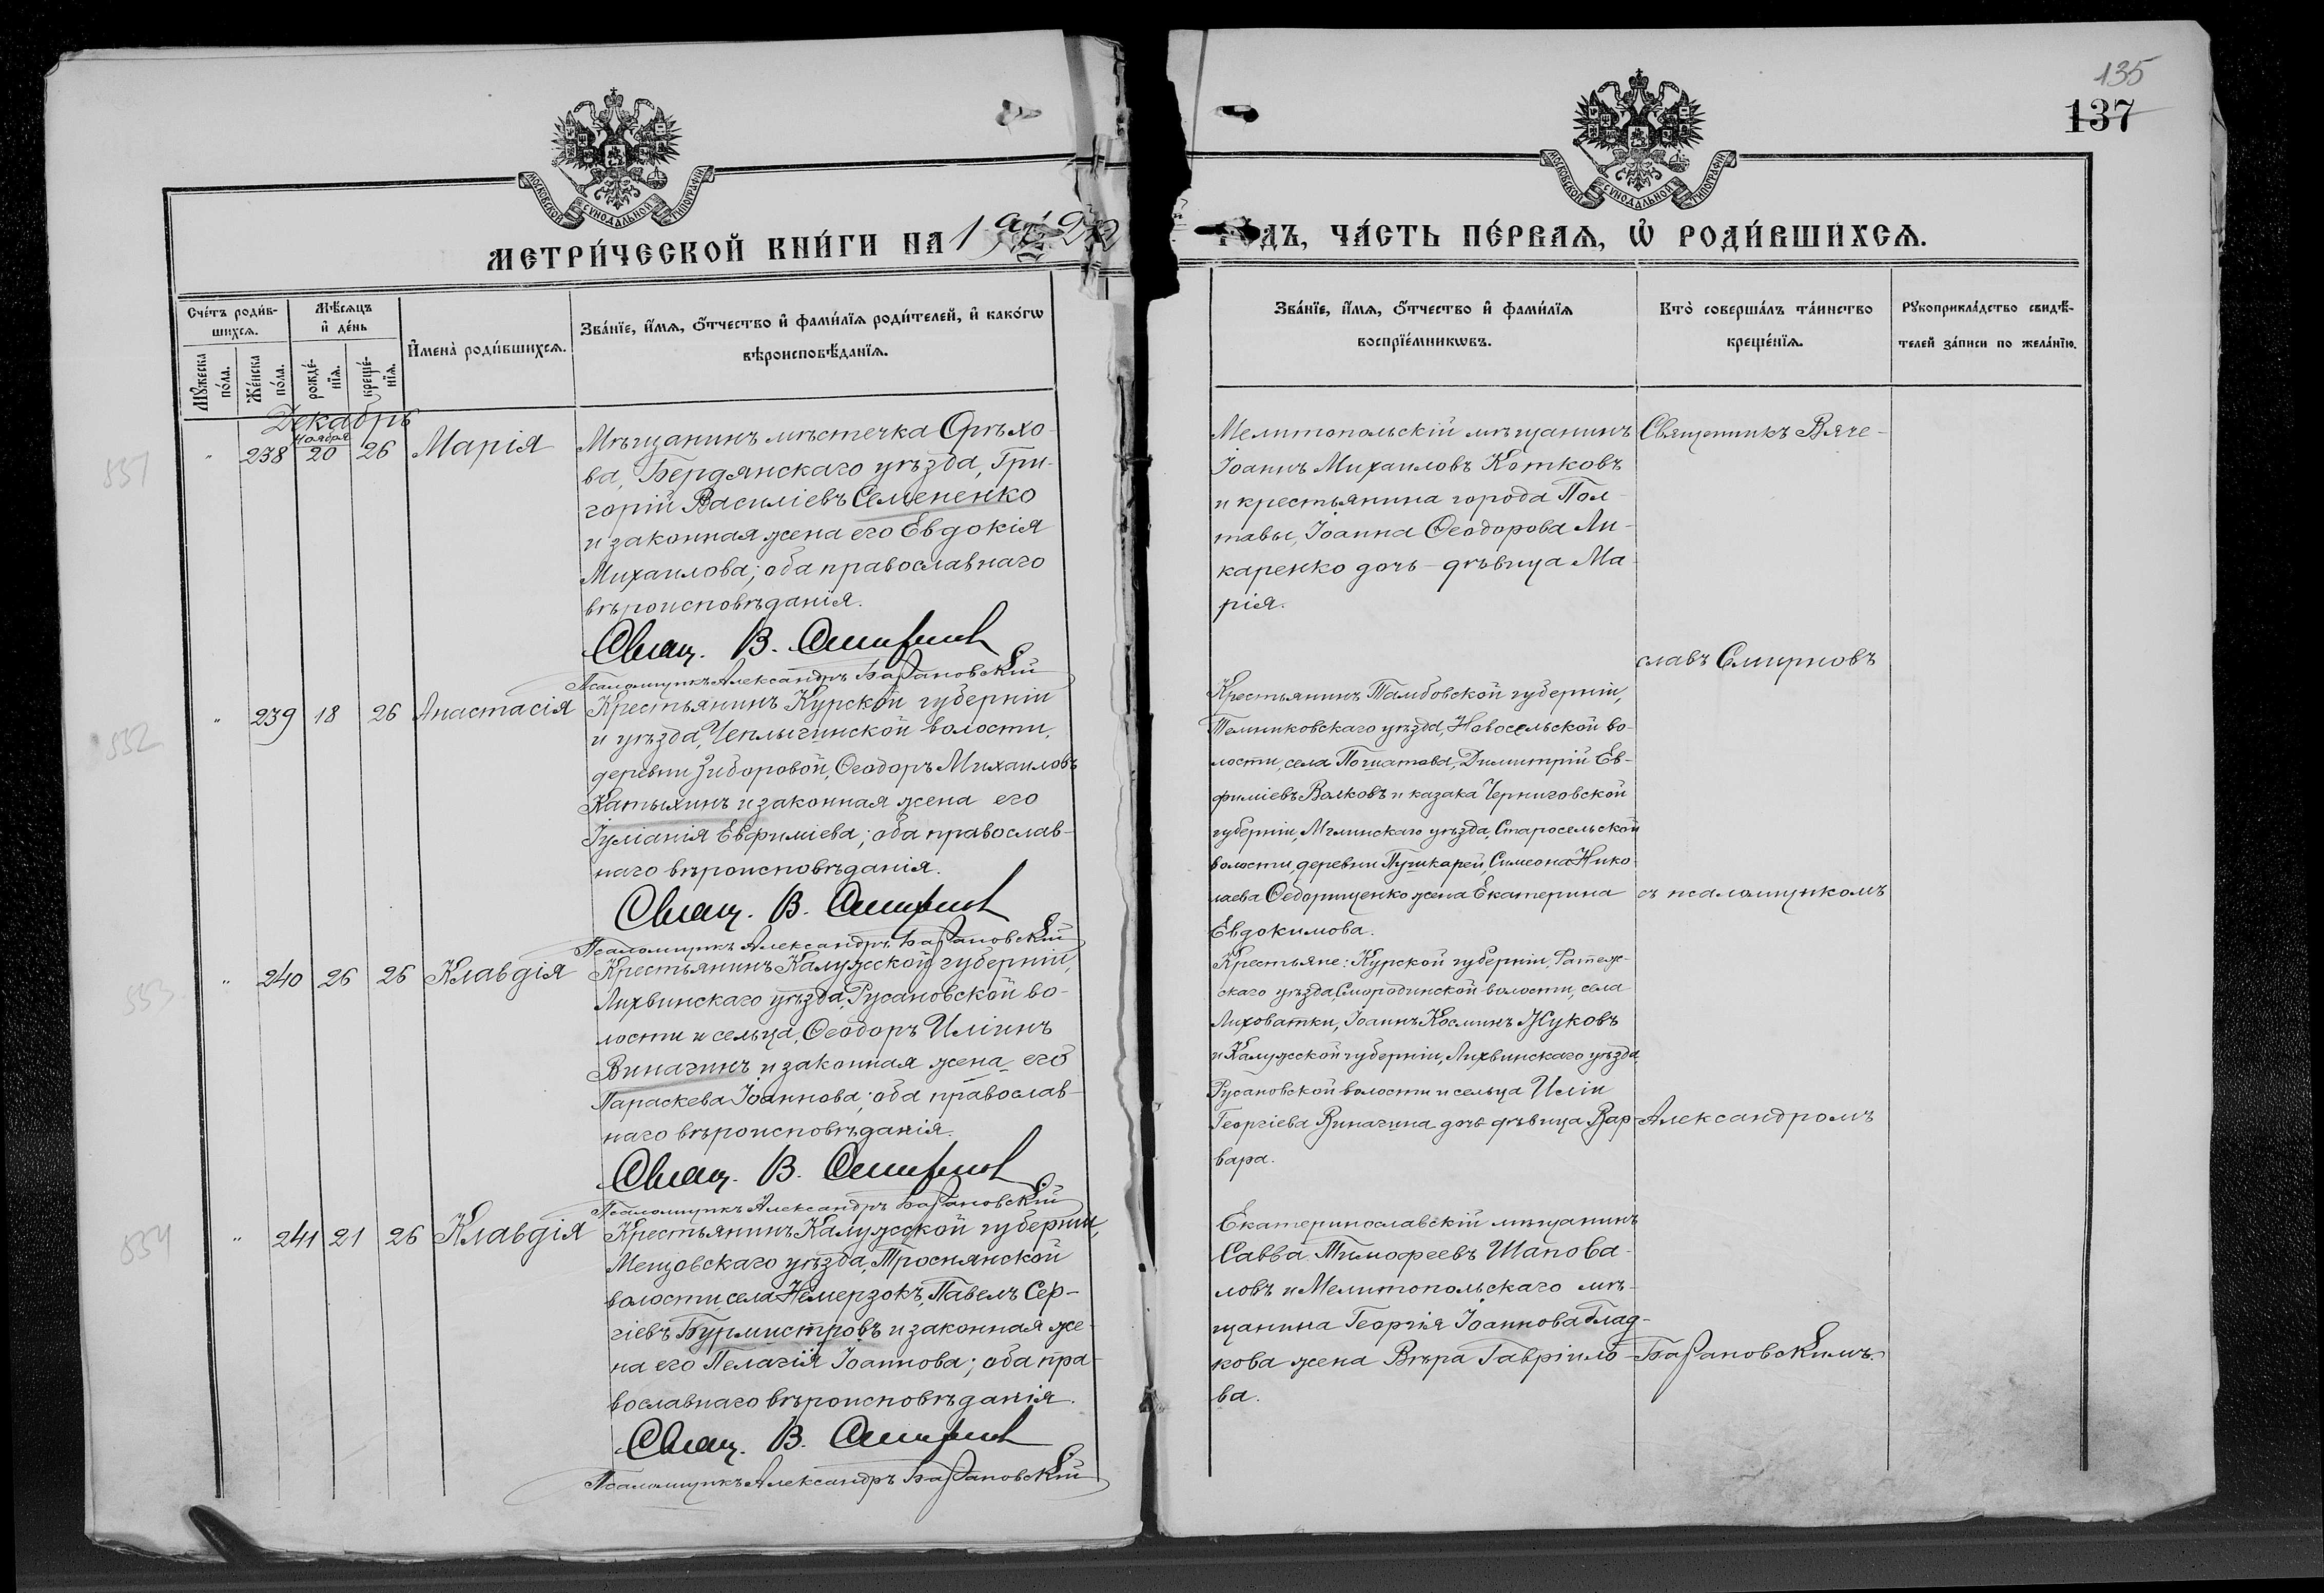 135
137
МОСКОВСКОЙ СѴНОДАЛЬНОЙ ТИПОГРАФІИ
МОСКОВСКОЙ СѴНОДАЛЬНОЙ ТИПОГРАФІИ
МЕТРИ́ЧЕСКОЙ КНИ́ГИ НА 19
ДЪ, ЧА́СТЬ ПЕ́РВАѦ, Ѡ҆ РОДИ́ВШИХСѦ.
Сче́тъ роди́в-
шихсѧ.
Мꙋ́жеска по́ла.
Же́нска по́ла.
Мѣ́сѧцъ
и҆ де́нь
рожде́-
нїѧ.
креще́-
нїѧ.
И҆мена̀ роди́вшихсѧ.
Зва́нїе, и҆́мѧ, о҆́тчество и҆ фами́лїѧ роди́телей, и҆ како́гѡ
вѣроисповѣ́данїѧ.
Зва́нїе, и҆́мѧ, о҆́тчество и҆ фами́лїѧ
воспрїе́мникѡвъ.
Кто̀ соверша́лъ та́инство
креще́нїѧ.
Рꙋкоприкла́дство свидѣ́-
телей за́писи по жела́нїю.
Декабрь
Ноября
551
" 238 20 26 Марія
Мѣщанинъ мѣстечка Орѣхо-
ва, Бердянскаго уѣзда, Гри-
горій Василіевъ Семененко
и законная жена его Евдокія
Михаилова; оба православнаго
вѣроисповѣданія.
Свящ. В. Смирнов
Псаломщикъ Александръ Барановскій
Мелитопольскій мѣщанинъ
Іоаннъ Михаиловъ Котковъ
и крестьянина города Пол-
тавы, Іоанна Ѳеодорова Ли-
каренко дочь-дѣвица Ма-
рія.
Священникъ Вяче-
славъ Смирновъ
552
" 239 18 26 Анастасія
Крестьянинъ Курской губерніи
и уѣзда, Чеплыгинской волости,
деревни Зиборовой, Ѳеодоръ Михаиловъ
Катыхинъ и законная жена его
Іуліанія Евфиміева; оба православ-
наго вѣроисповѣданія.
Свящ. В. Смирнов
Псаломщикъ Александръ Барановскій
Крестьянинъ Тамбовской губерніи,
Темниковскаго уѣзда, Новосельской во-
лости, села Димитрій Ев-
фиміевъ Волковъ и казака Черниговской
губерніи, Мглинскаго уѣзда, Старосельской
волости, деревни Пушкарей, Симеона Нико-
лаева Ѳедорищенко жена Екатерина
Евдокимова.
съ псаломщикомъ
553
" 240 26 26 Клавдія
Крестьянинъ Калужской губерніи,
Лихвинскаго уѣзда, Русановской во-
лости и сельца, Ѳеодоръ Иліинъ
Виначинъ и законная жена его
Параскева Іоаннова; оба православ-
наго вѣроисповѣданія.
Свящ. В. Смирнов
Псаломщикъ Александръ Барановскій
Крестьяне: Курской губерніи, Фатеж-
скаго уѣзда, Смородинской волости, села
Лиховатки, Іоаннъ Косминъ Жуковъ
и Калужской губерніи, Лихвинскаго уѣзда
Русановской волости и сельца Иліи
Георгіева Виначина дочь дѣвица Вар-
вара.
Александромъ
554
" 241 21 26 Клавдія
Крестьянинъ Калужской губерніи,
Мещовскаго уѣзда, Троснянской
волости села Немерзокъ, Павелъ Сер-
гіевъ Бурмистровъ и законная же-
на его Пелагія Іоаннова; оба пра-
вославнаго вѣроисповѣданія.
Свящ. В. Смирнов
Псаломщикъ Александръ Барановскій
Екатеринославскій мѣщанинъ
Савва Тимофеевъ Шапова-
ловъ и Мелитопольскаго мѣ-
щанина Георгія Іоаннова Глад-
кова жена Вѣра Гавріило-
ва.
Барановскимъ.